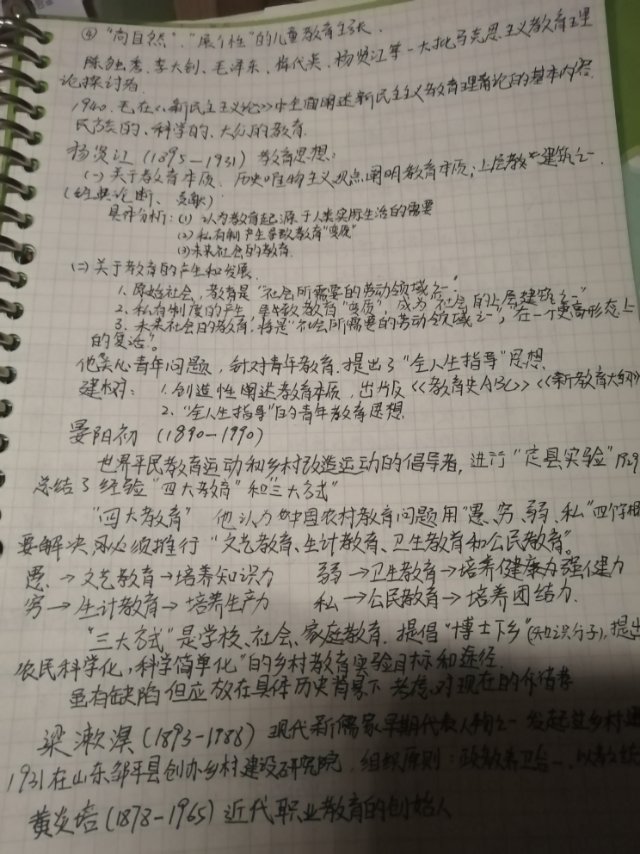 ④ "尚自然"、"展个性"的儿童教育主张.
陈独秀、李大钊、毛泽东、恽代英、杨贤江等一大批马克思主义教育理
论探讨者.
1940. 毛在《新民主主义论》中全面阐述新民主主义教育理论的基本内容.
民族的、科学的、大众的教育.
杨贤江 (1895—1931) 教育思想:
(一) 关于教育本质. 历史唯物主义观点阐明教育本质; 上层建筑之一.
(经典论断、贡献)
具体分析: (1) 认为教育起源于人类实际生活的需要
(2) 私有制产生导致教育"变质"
(3) 未来社会的教育.
(二) 关于教育的产生和发展.
1. 原始社会, 教育是"社会所需要的劳动领域之一".
2. 私有制度的产生, 导致教育"变质", 成为"社会的上层建筑之一"
3. 未来社会的教育, 将是"社会所需要的劳动领域之一", 在一个更高形态上
的复活".
他关心青年问题, 针对青年教育. 提出了"全人生指导"思想.
建树: 1. 创造性阐述教育本质, 出版《教育史ABC》《新教育大纲》
2. "全人生指导"的青年教育思想.
晏阳初 (1890—1990)
世界平民教育运动和乡村改造运动的倡导者, 进行"定县实验" 1929
总结了经验"四大教育"和"三大方式"
"四大教育" 他认为中国农村教育问题用"愚、穷、弱、私"四个字
要解决, 必须推行"文艺教育、生计教育、卫生教育和公民教育".
愚 → 文艺教育 → 培养知识力 弱 → 卫生教育 → 培养健康力强健力
穷 → 生计教育 → 培养生产力 私 → 公民教育 → 培养团结力.
"三大方式"是学校、社会、家庭教育. 提倡"博士下乡"(知识分子), 提出
农民科学化, 科学简单化"的乡村教育实验目标和途径.
虽有缺陷但应放在具体历史背景下考虑, 对现在的价值等
梁漱溟 (1893—1988) 现代新儒家早期代表人物之一 发起过乡村建
1931在山东邹平县创办乡村建设研究院, 组织原则: 政教养卫合一, 以教统
黄炎培 (1878—1965) 近代职业教育的创始人